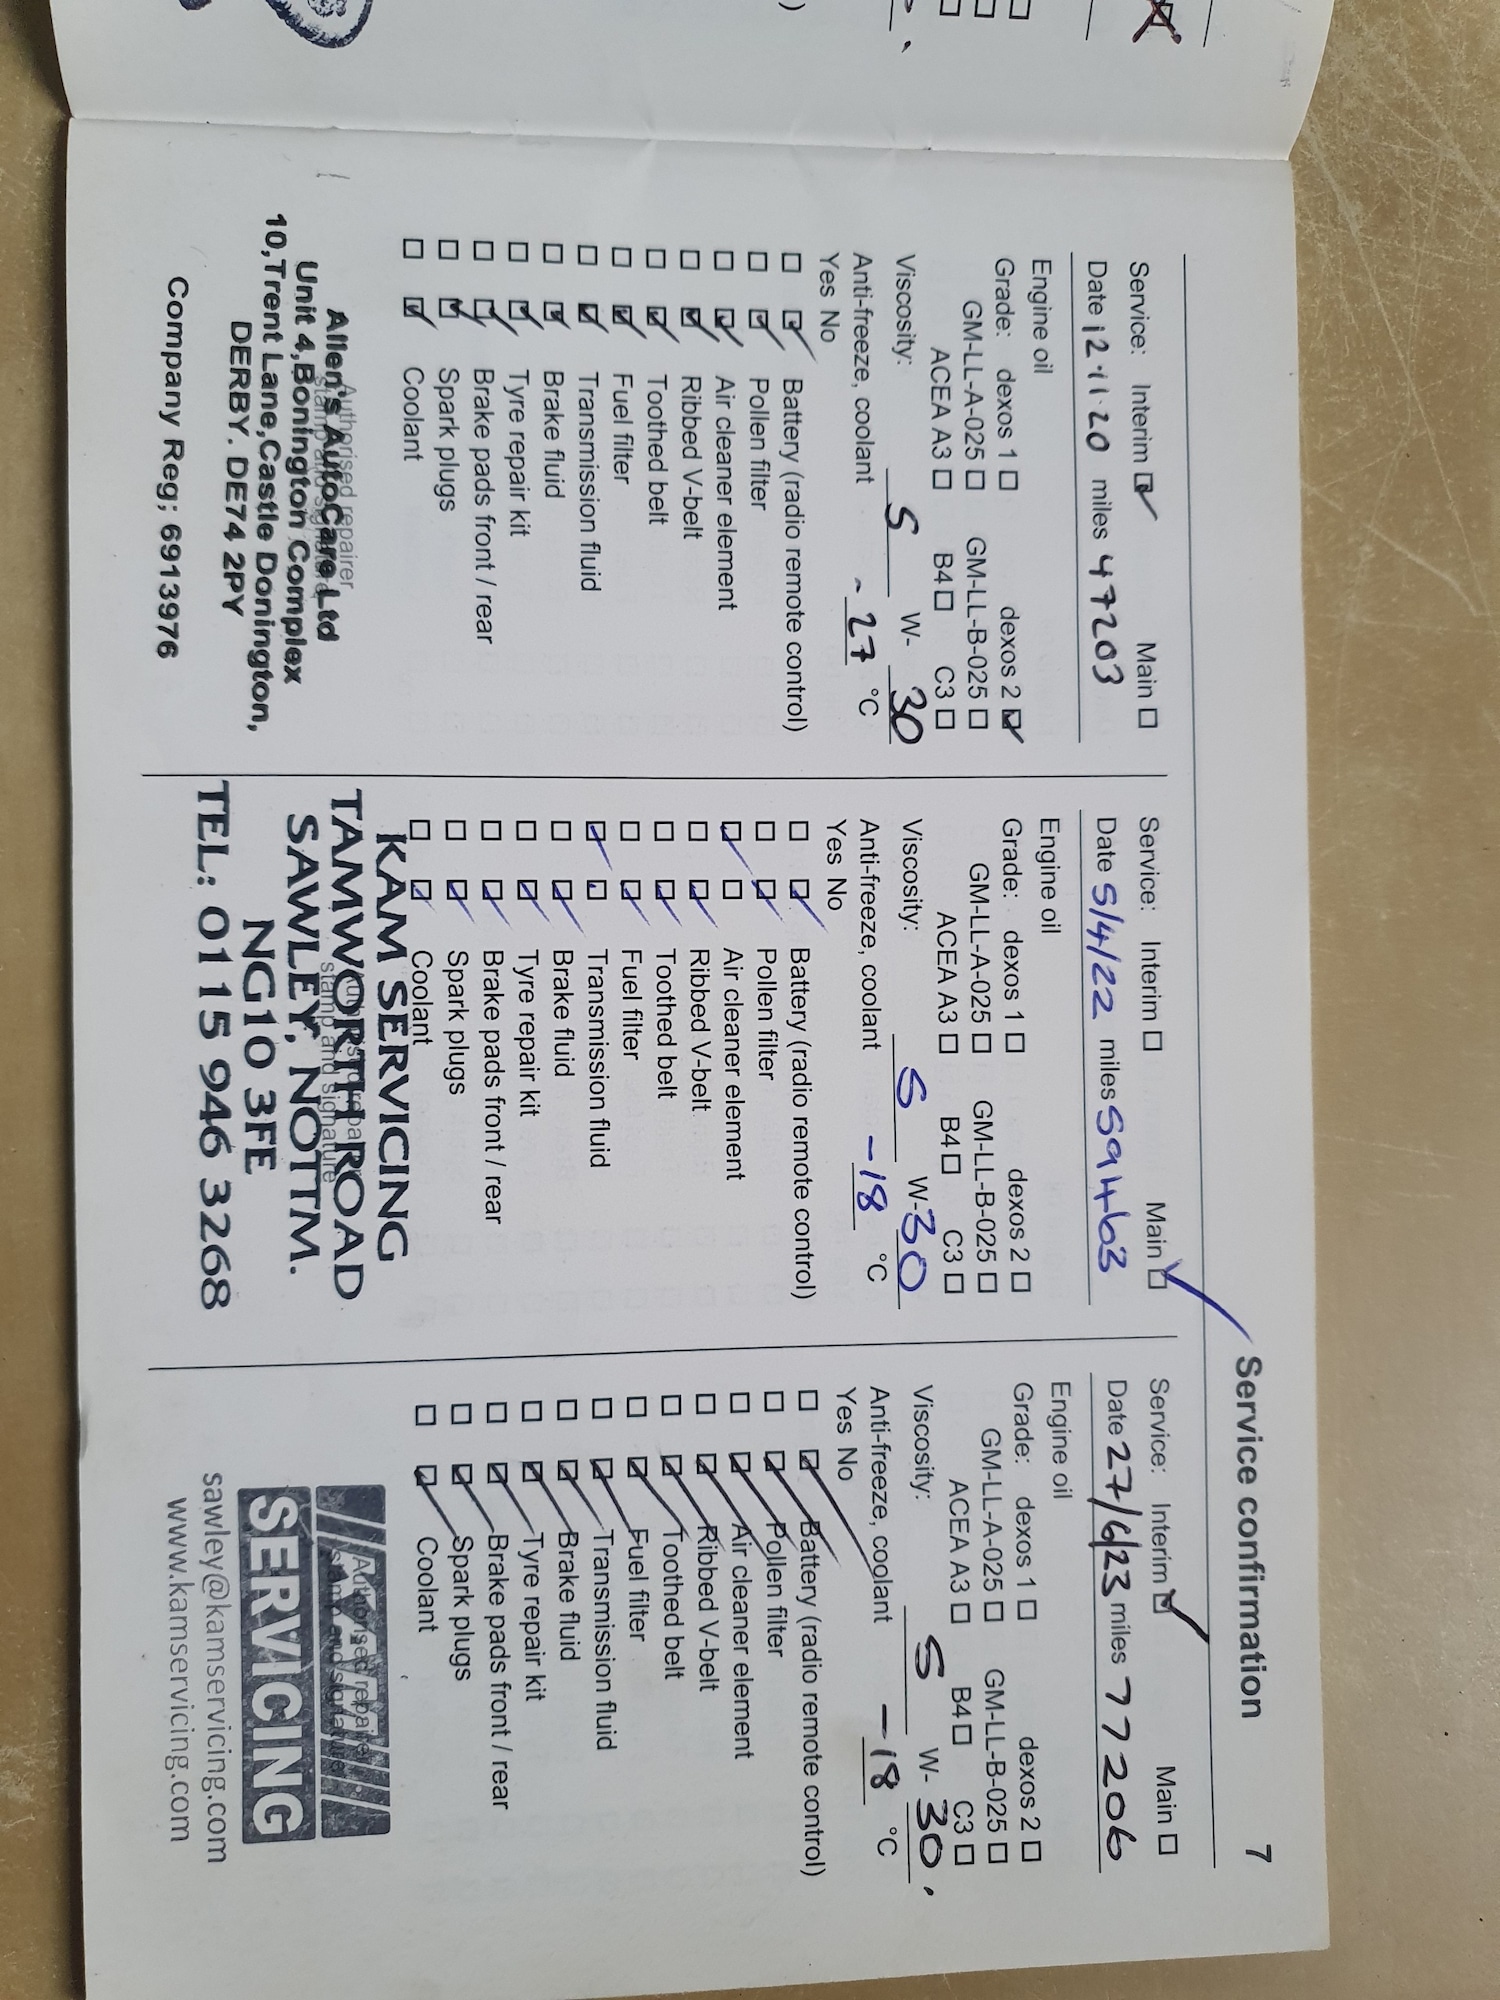 Service confirmation 7
Service: Interim Main
Date 12.11.20 miles 47203
Engine oil
Grade: dexos 1 dexos 2
GM-LL-A-025 GM-LL-B-025
ACEA A3 B4 C3
Viscosity: 5 W-30
Anti-freeze, coolant -27 °C
Yes No
Battery (radio remote control)
Pollen filter
Air cleaner element
Ribbed V-belt
Toothed belt
Fuel filter
Transmission fluid
Brake fluid
Tyre repair kit
Brake pads front / rear
Spark plugs
Coolant
Authorised repairer
stamp and signature
Allen's AutoCare Ltd
Unit 4,Bonington Complex
10,Trent Lane,Castle Donington,
DERBY. DE74 2PY
Company Reg; 6913976
Service: Interim Main
Date 5/4/22 miles 59463
Engine oil
Grade: dexos 1 dexos 2
GM-LL-A-025 GM-LL-B-025
ACEA A3 B4 C3
Viscosity: 5 W-30
Anti-freeze, coolant -18 °C
Yes No
Battery (radio remote control)
Pollen filter
Air cleaner element
Ribbed V-belt
Toothed belt
Fuel filter
Transmission fluid
Brake fluid
Tyre repair kit
Brake pads front / rear
Spark plugs
Coolant
Authorised repairer
stamp and signature
KAM SERVICING
TAMWORTH ROAD
SAWLEY, NOTTM.
NG10 3FE
TEL: 0115 946 3268
Service: Interim Main
Date 27/6/23 miles 77206
Engine oil
Grade: dexos 1 dexos 2
GM-LL-A-025 GM-LL-B-025
ACEA A3 B4 C3
Viscosity: 5 W-30.
Anti-freeze, coolant -18 °C
Yes No
Battery (radio remote control)
Pollen filter
Air cleaner element
Ribbed V-belt
Toothed belt
Fuel filter
Transmission fluid
Brake fluid
Tyre repair kit
Brake pads front / rear
Spark plugs
Coolant
Authorised repairer
stamp and signature
SERVICING
sawley@kamservicing.com
www.kamservicing.com